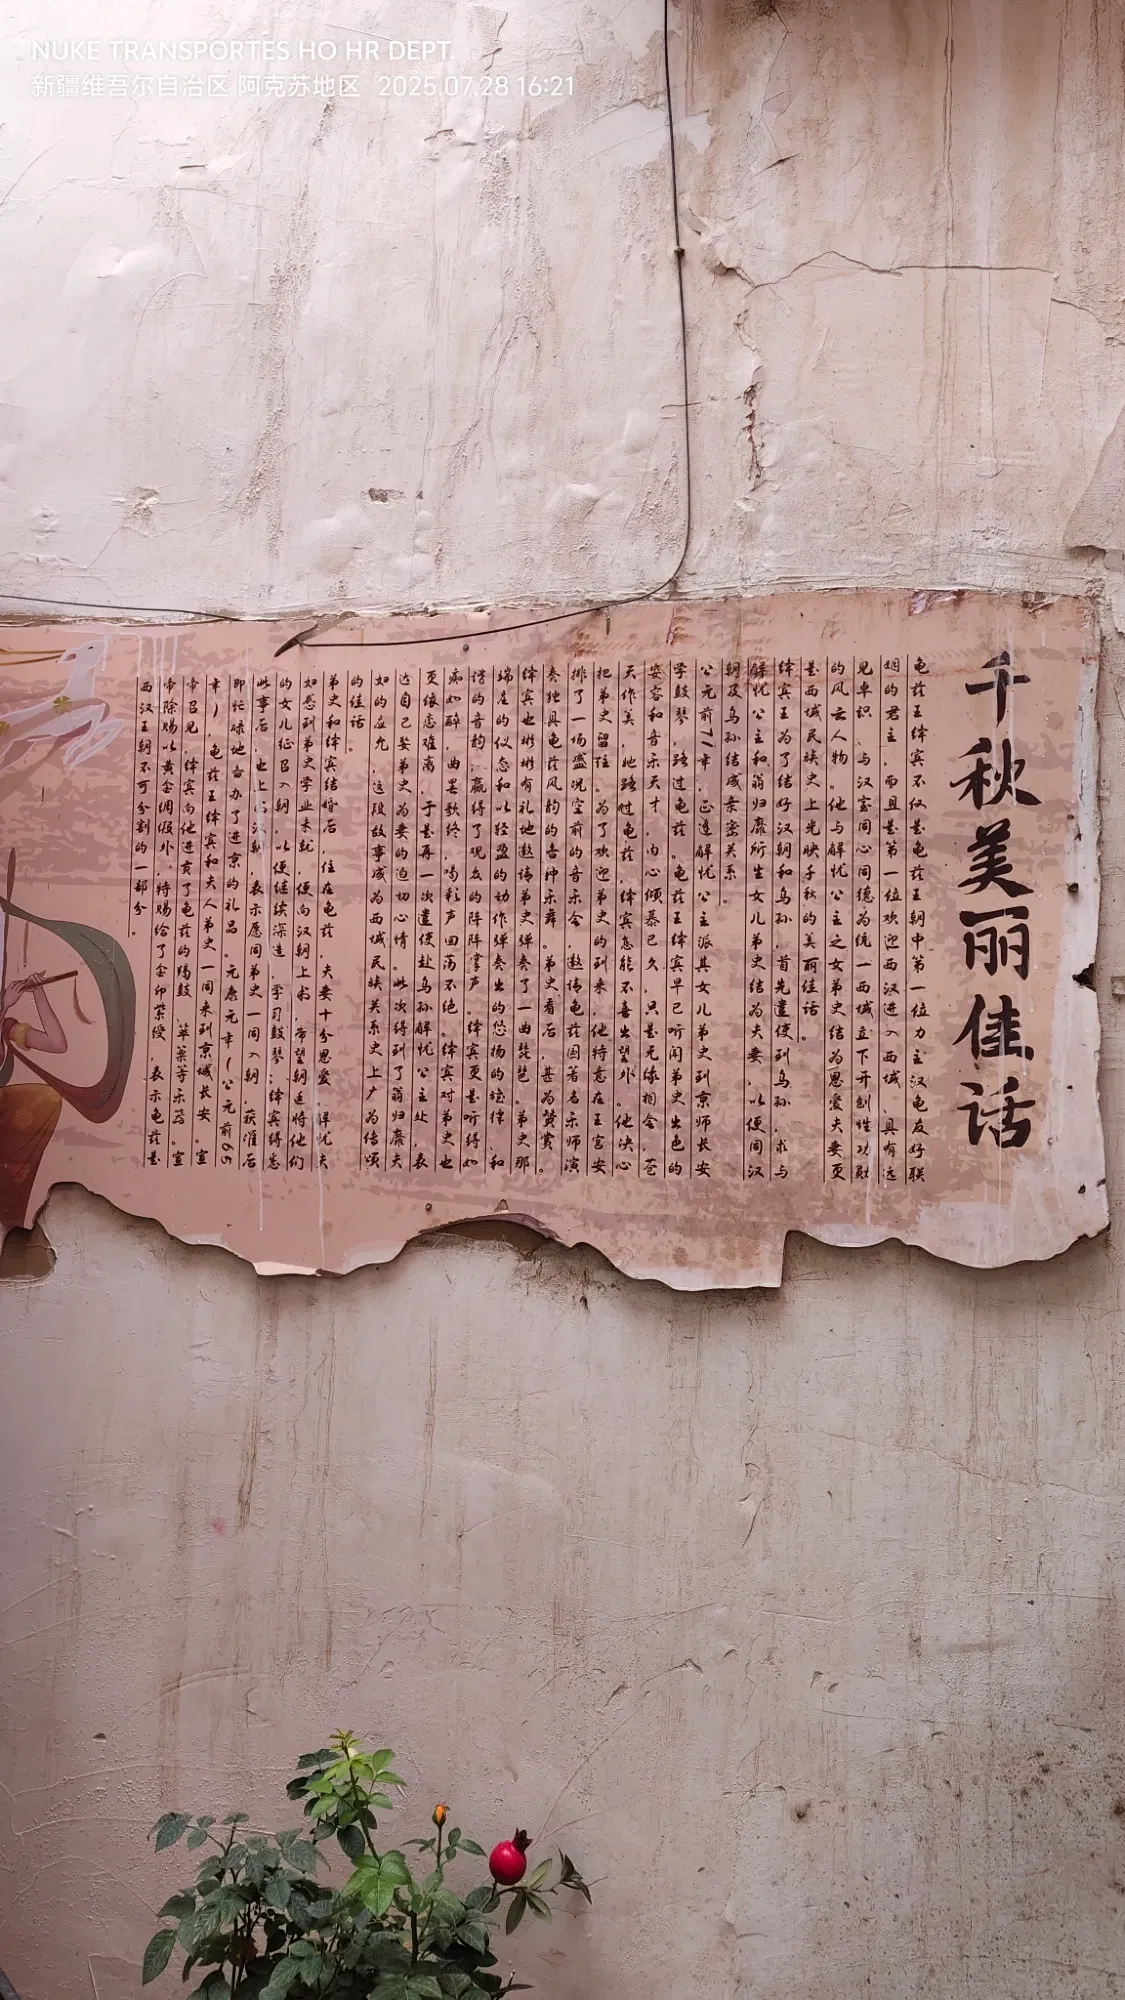 NUKE TRANSPORTES HO HR DEPT.
新疆维吾尔自治区 阿克苏地区 2025.07.28 16:21
千秋美丽佳话
龟兹王绛宾不仅是龟兹王朝中第一位力主汉龟友好联
姻的君主，而且是第一位欢迎西汉进入西域、具有远
见卓识、与汉室同心同德为统一西域立下开创性功勋
的风云人物。他与解忧公主之女弟史结为恩爱夫妻更
是西域民族史上光映千秋的美丽佳话。
绛宾王为了结好汉朝和乌孙，首先遣使到乌孙，求与
解忧公主和翁归靡所生女儿弟史结为夫妻，以便同汉
朝及乌孙结成亲密关系。
公元前71年，正逢解忧公主派其女儿弟史到京师长安
学鼓琴，路过龟兹。龟兹王绛宾早已听闻弟史出色的
姿容和音乐天才，内心倾慕已久，只是无缘相会，苍
天作美，她路过龟兹，绛宾怎能不喜出望外。他决心
把弟史留住。为了欢迎弟史的到来，他特意在王宫安
排了一场盛况空前的音乐会，邀请龟兹国著名乐师演
奏独具龟兹风韵的各种乐舞。弟史看后，甚为赞赏。
绛宾也彬彬有礼地邀请弟史弹奏了一曲琵琶。弟史那
端庄的仪态和以轻盈的动作弹奏出的悠扬的旋律、和
谐的音韵，赢得了观众的阵阵掌声。绛宾更是听得如
痴如醉，曲罢歌终，喝彩声回荡不绝。绛宾对弟史也
更依恋难离，于是再一次遣使赴乌孙解忧公主处，表
达自己娶弟史为妻的迫切心情。此次得到了翁归靡夫
妇的应允，这段故事成为西域民族关系史上广为传颂
的佳话。
弟史和绛宾结婚后，住在龟兹，夫妻十分恩爱。解忧夫
妇感到弟史学业未就，便向汉朝上书，希望朝廷将他们
的女儿征召入朝，以便继续深造，学习鼓琴；绛宾得悉
此事后，也上书汉朝，表示愿同弟史一同入朝，获准后
即忙碌地备办了进京的礼品。元康元年（公元前65
年），龟兹王绛宾和夫人弟史一同来到京城长安。宣
帝召见，绛宾向他进贡了龟兹的羯鼓、筚篥等乐器。宣
帝除赐以黄金绸缎外，特赐给了金印紫绶，表示龟兹是
西汉王朝不可分割的一部分。